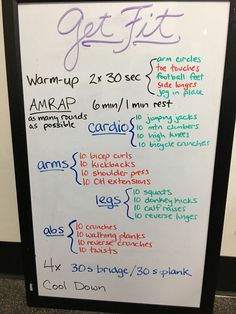 Get Fit
arm circles
toe touches
Warm-up 2x 30 sec football feet
side lunges
jog in place
AMRAP 6 min/1 min rest
as many rounds
as possible
10 jumping jacks
cardio 10 mtn climbers
10 high knees
10 bicycle crunches
10 bicep curls
arms 10 kickbacks
10 shoulder press
10 OH extensions
10 squats
legs 10 donkey kicks
10 calf raises
10 reverse lunges
10 crunches
abs 10 walking planks
10 reverse crunches
10 twists
4x 30s bridge/30s plank
Cool Down